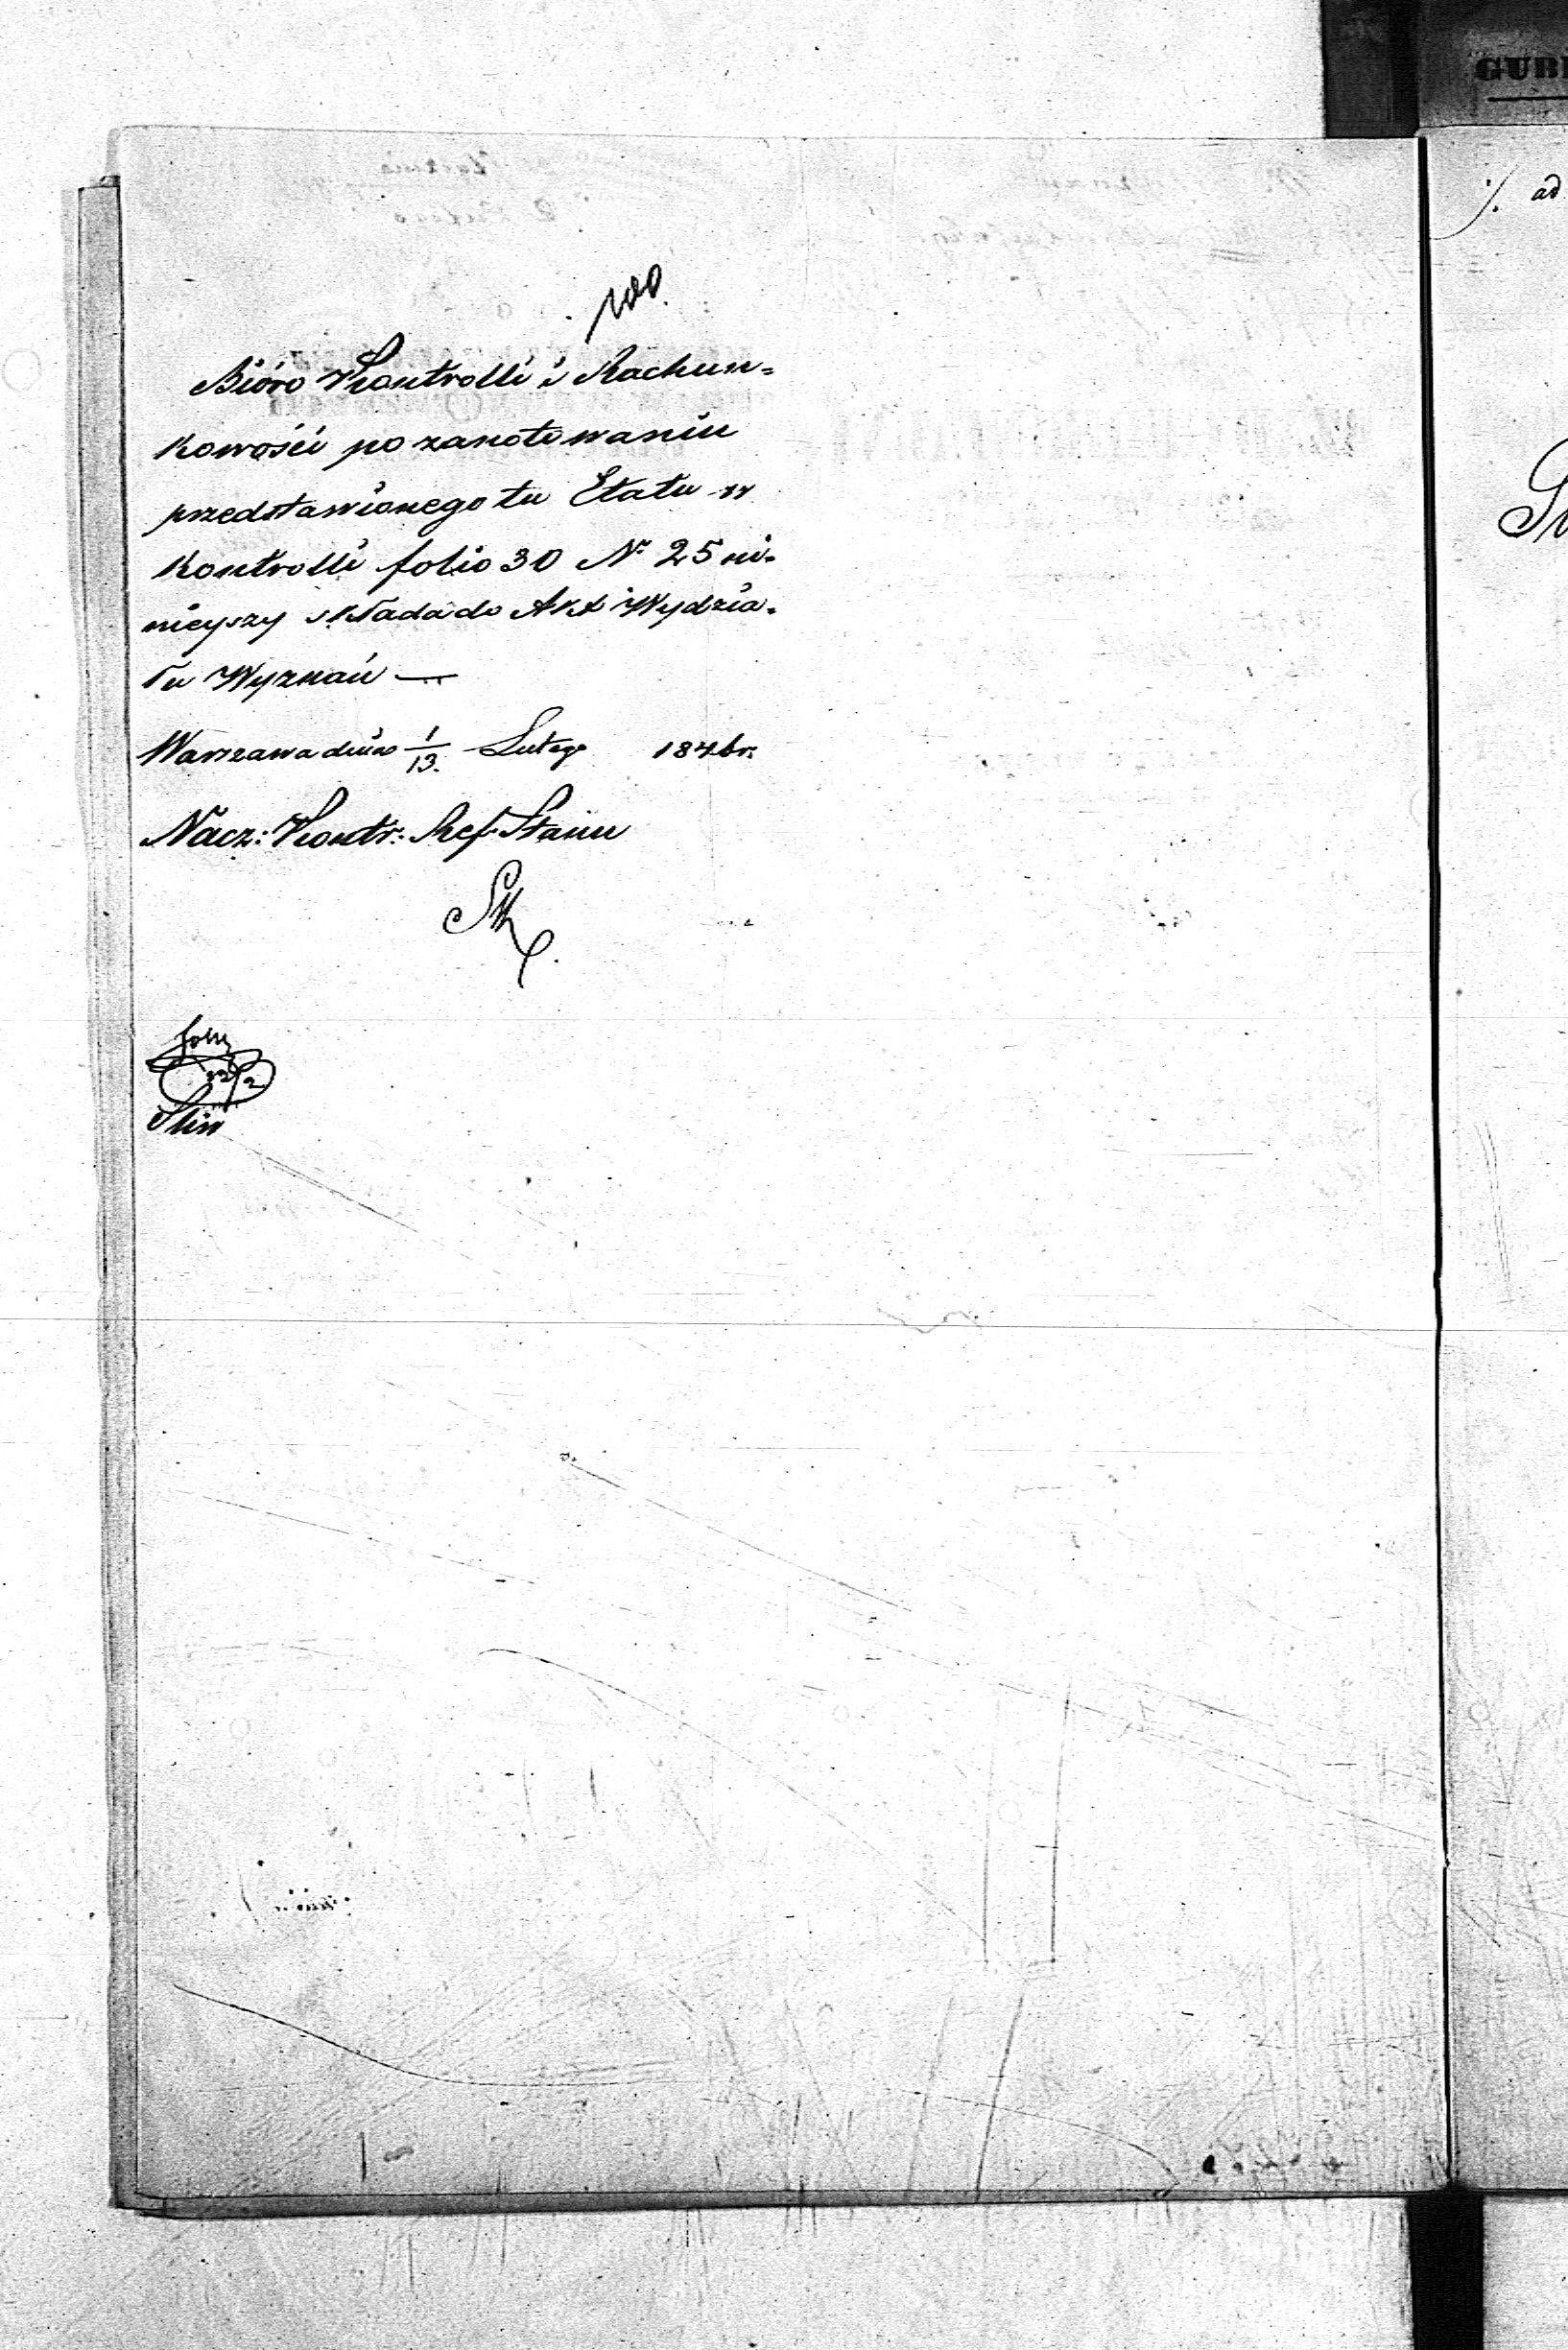 Bióro Kontrolli i Rachun=
kowości po zanotowaniu
przedstawionego tu Etatu w
Kontrolli folio 30 Nº 25 ni=
nieyszy składa do Akt Wydzia=
łu Wyznań —
Warszawa dnia 1/13. Lutego 1846 r.
Nacz: Kontr: Ref. Stanu
GUB
./. ad